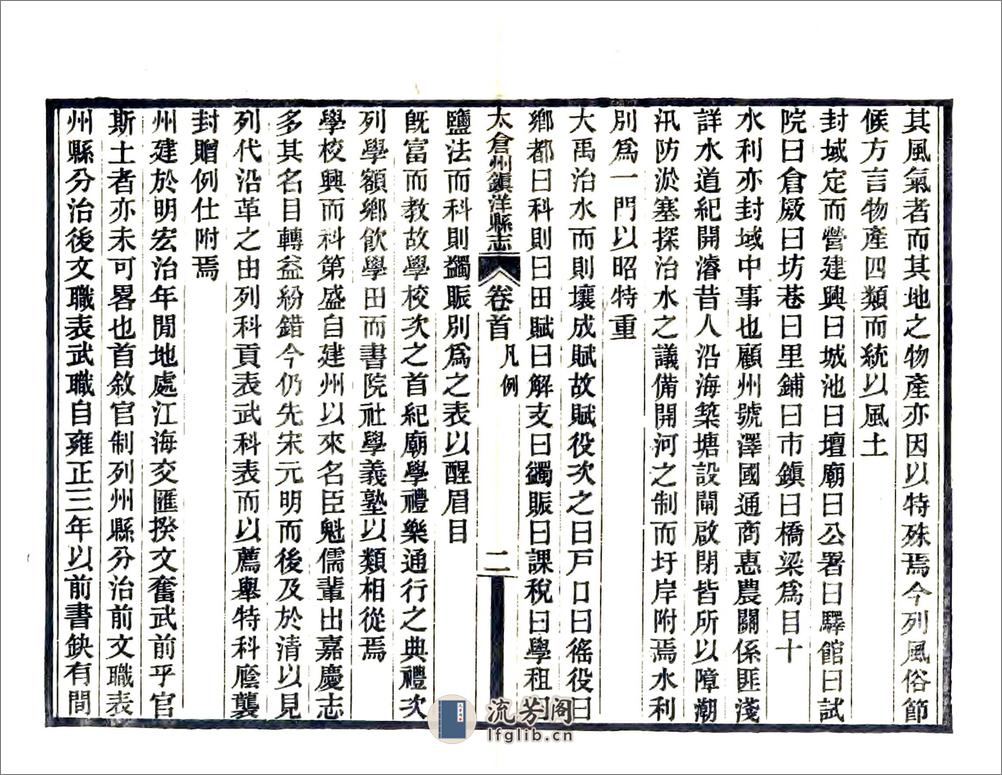 其風氣者而其地之物產亦因以特殊焉今列風俗節
候方言物產四類而統以風土
封域定而營建興曰城池曰壇廟曰公署曰驛館曰試
院曰倉廒曰坊巷曰里鋪曰市鎮曰橋梁爲目十
水利亦封域中事也顧州號澤國通商惠農關係匪淺
詳水道紀開濬昔人沿海築塘設閘啟閉皆所以障潮
汛防淤塞探治水之議備開河之制而圩岸附焉水利
別爲一門以昭特重
大禹治水而則壤成賦故賦役次之曰戸口曰徭役曰
鄉都曰科則曰田賦曰解支曰蠲賑曰課稅曰學租曰
太倉州鎮洋縣志 卷首 凡例 二
鹽法而科則蠲賑別爲之表以醒眉目
旣富而教故學校次之首紀廟學禮樂通行之典禮次
列學額鄉飲學田而書院社學義塾以類相從焉
學校興而科第盛自建州以來名臣魁儒輩出嘉慶志
多其名目轉益紛錯今仍先宋元明而後及於清以見
列代沿革之由列科貢表武科表而以薦舉特科廕襲
封贈例仕附焉
州建於明宏治年閒地處江海交匯揆文奮武前乎官
斯土者亦未可畧也首敘官制列州縣分治前文職表
州縣分治後文職表武職自雍正三年以前書缺有間
流芳阁
lfglib.cn